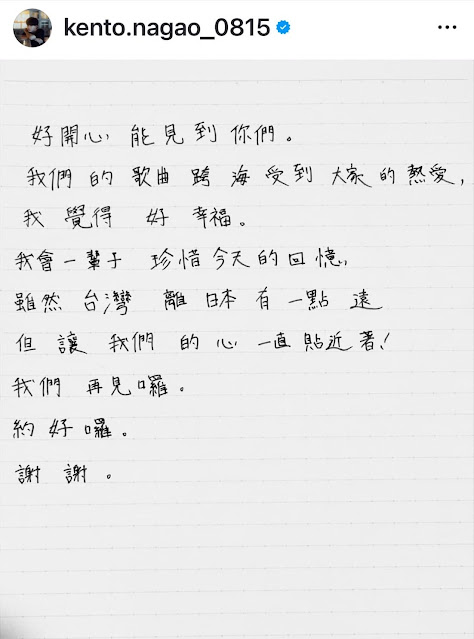 kento.nagao_0815
好開心 能見到你們。
我們的歌曲跨海受到大家的熱愛,
我覺得好幸福。
我會一輩子珍惜今天的回憶,
雖然台灣離日本有一點遠
但讓我們的心一直貼近著!
我們再見囉。
約好囉。
謝謝。